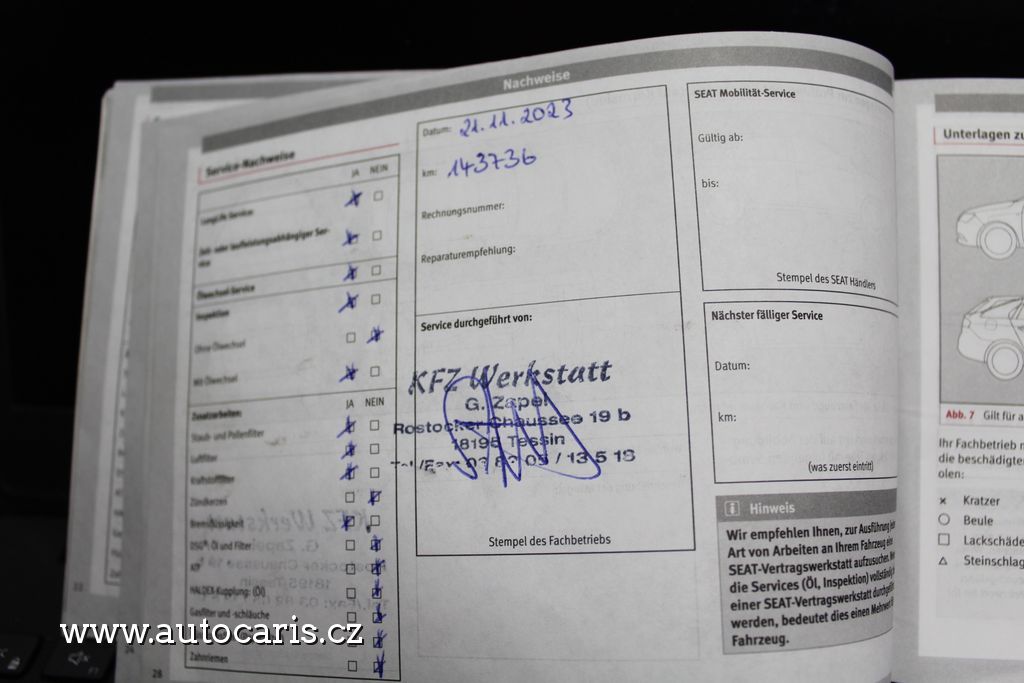 Nachweise
Service-Nachweise
JA NEIN
LongLife-Service
Zeit- oder laufleistungsabhängiger Ser-
vice
Ölwechsel-Service
Inspektion
Ohne Ölwechsel
Mit Ölwechsel
Zusatzarbeiten:
JA NEIN
Staub- und Pollenfilter
Luftfilter
Kraftstofffilter
Zündkerzen
Bremsflüssigkeit
DSG®: Öl und Filter
HALDEX-Kupplung: (Öl)
Gasfilter und -schläuche
Zahnriemen
28
Datum: 21.11.2023
km: 143736
Rechnungsnummer:
Reparaturempfehlung:
Service durchgeführt von:
KFZ Werkstatt
G. Zapel
Rostocker Chaussee 19 b
18195 Tessin
Tel./Fax: 03 82 05 / 13 5 18
Stempel des Fachbetriebs
SEAT Mobilität-Service
Gültig ab:
bis:
Stempel des SEAT Händlers
Nächster fälliger Service
Datum:
km:
(was zuerst eintritt)
Hinweis
Wir empfehlen Ihnen, zur Ausführung
Art von Arbeiten an Ihrem Fahrzeug
SEAT-Vertragswerkstatt aufzusuchen.
die Services (Öl, Inspektion)
einer SEAT-Vertragswerkstatt
werden, bedeutet dies einen Mehrwert
Fahrzeug.
Unterlagen zu
Abb. 7 Gilt für a
Ihr Fachbetrieb
die beschädigten
olen:
Kratzer
Beule
Lackschäde
Steinschlag
www.autocaris.cz